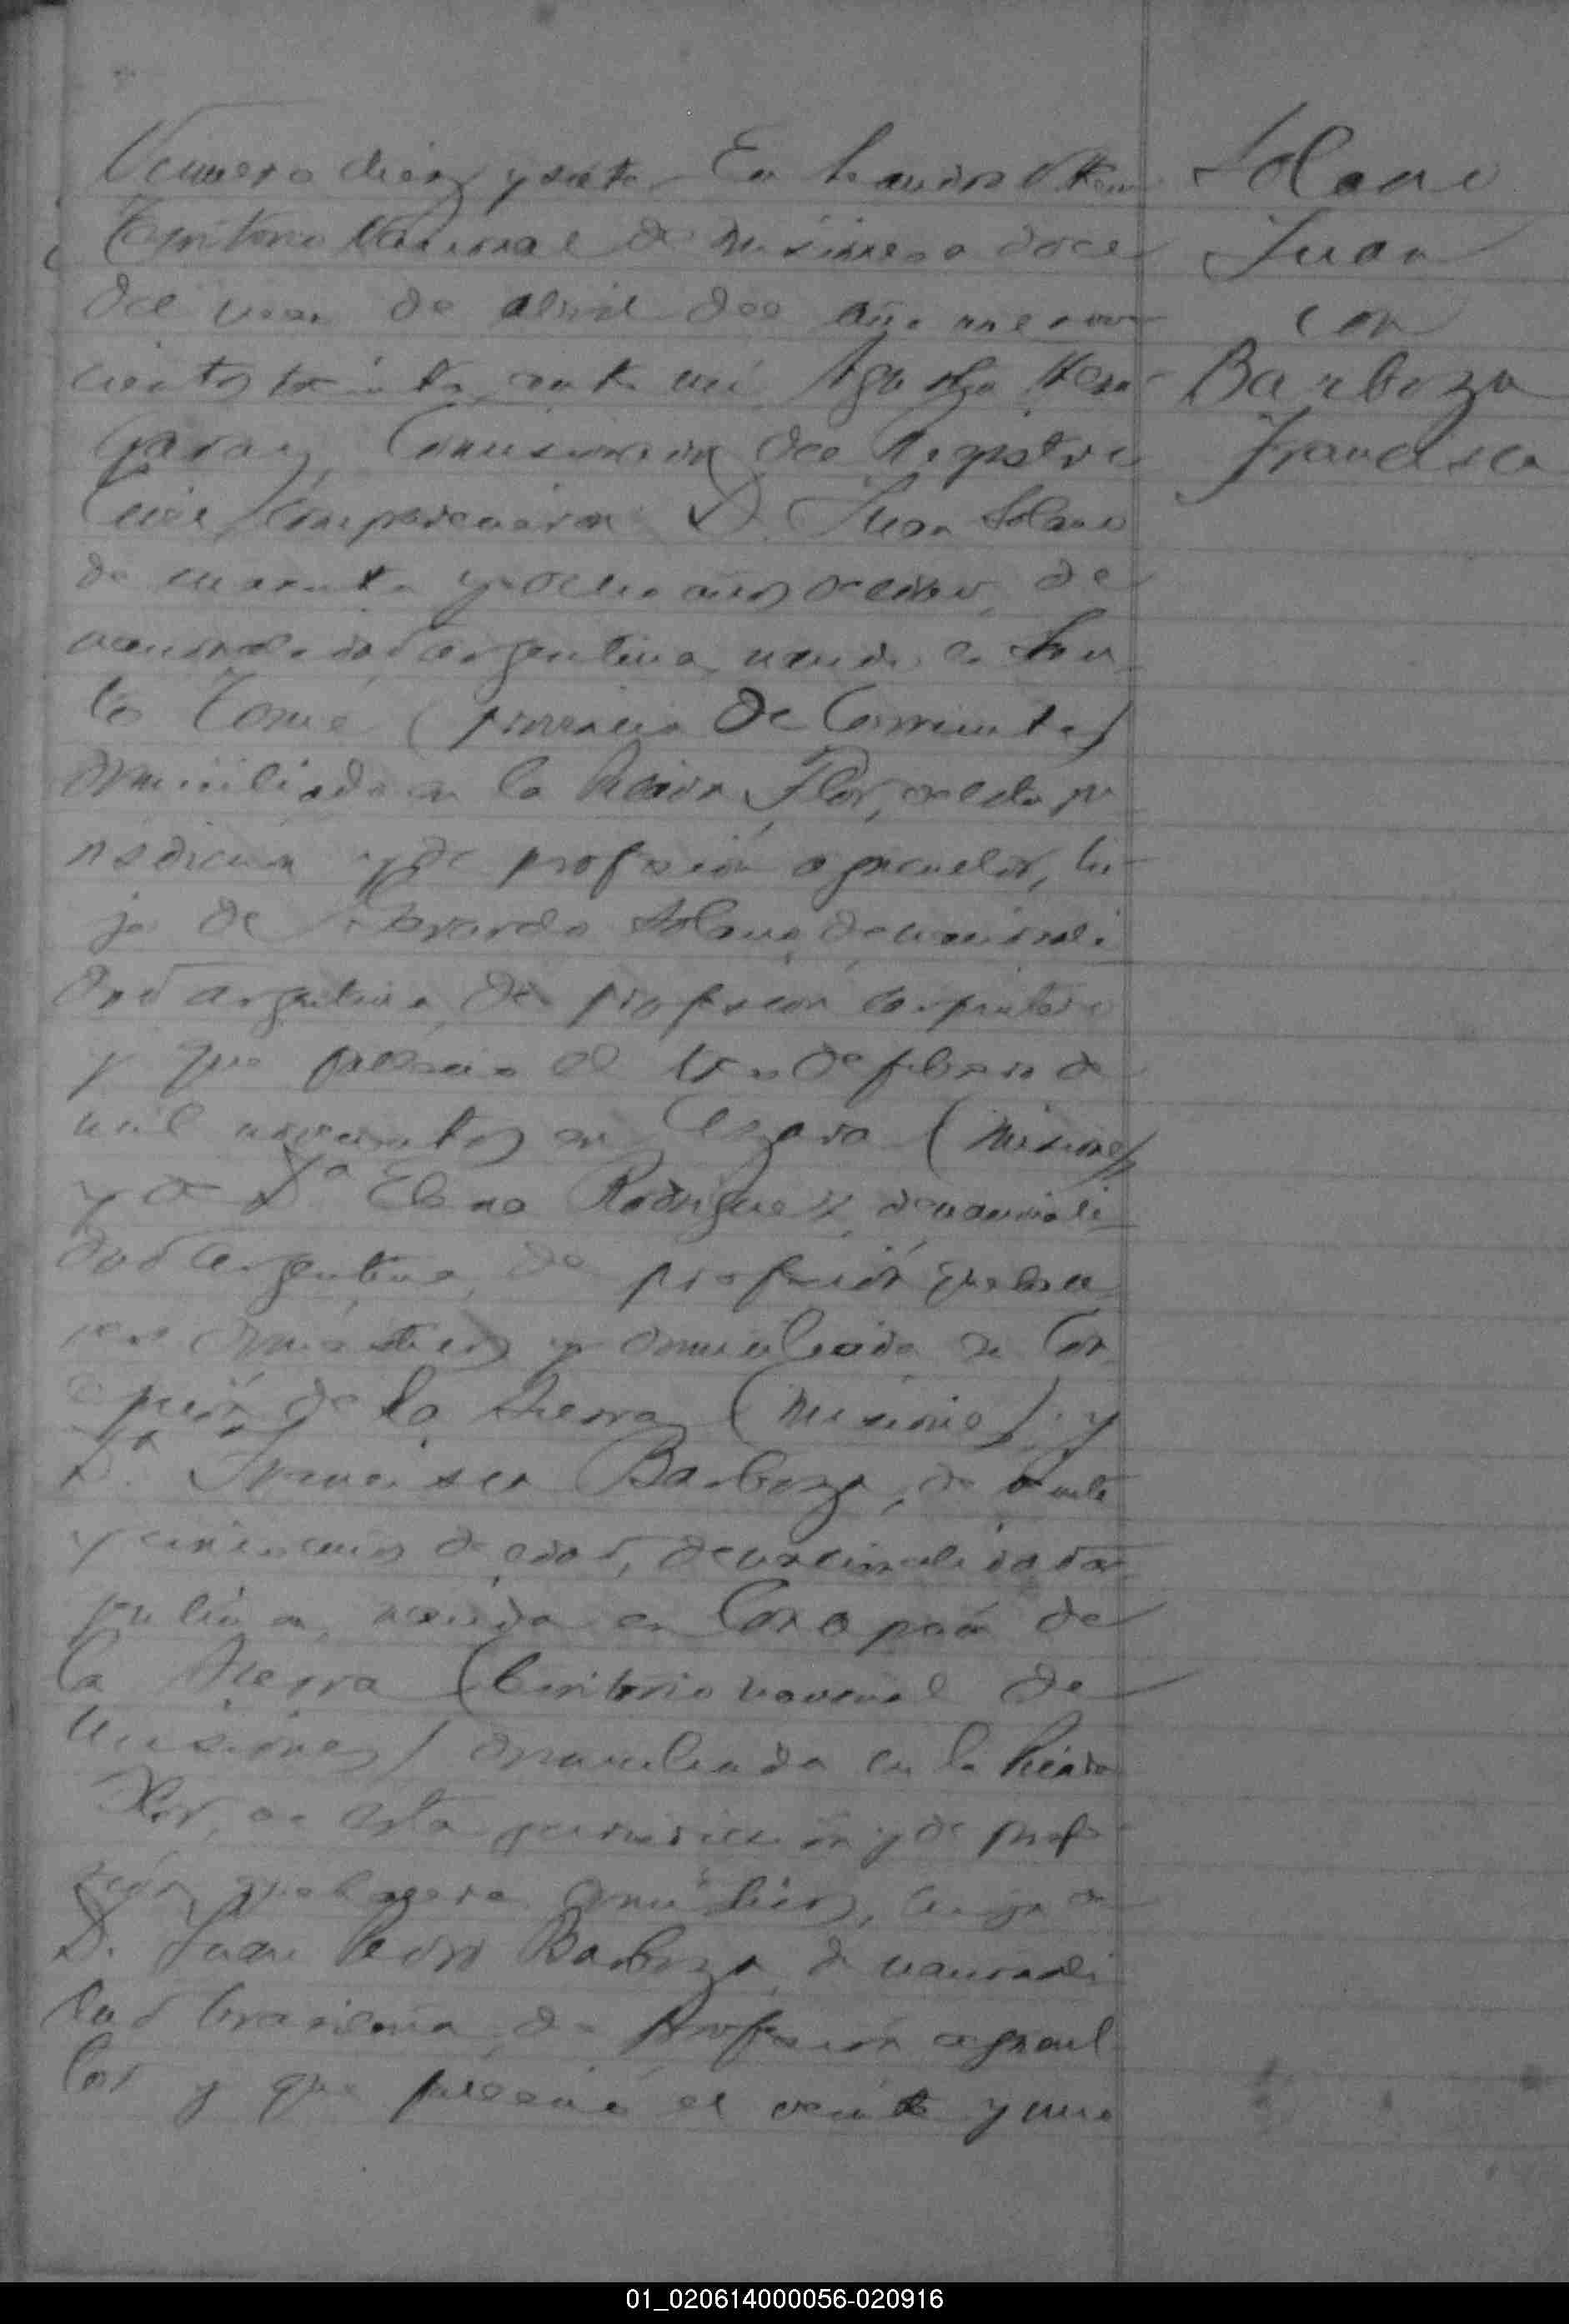 Numero diez y siete En Leandro N. Alem
Territorio Nacional de Misiones a doce
del mes de abril del año mil nove
cientos treinta ante mi,
Garay, del Registro
Civil Comparecieron D. Juan Solano
de cuarenta y ocho años de edad, de
nacionalidad argentina, nacido en San
to Tomé (provincia de Corrientes)
domiciliado en la Picada Flor, de esta ju
risdiccion y de profesión agricultor, hi-
jo de Solano, de nacionali
dad argentina, de profesión carpintero
y que falleció el de febrero de
mil novecientos en Azara (Misiones)
y de Da Elena Rodriguez, de nacionali
dad argentina, de profesión quehace
res domésticos y domiciliada en Con
cepción de la Sierra (Misiones) y
Da Francisca Barboza, de
y cinco años de edad, de nacionalidad ar
gentina, nacida en Concepción de
la Sierra (territorio nacional de
Misiones) domiciliada en la Picada
Flor, de esta jurisdiccion y de profe
sión quehaceres domésticos, hija de
D. Juan Pedro Barboza, de nacionali
dad brasileña, de profesión agricul
tor y que falleció el veinte y uno
Solano
Juan
con
Barboza
Francisca
01_020614000056-020916